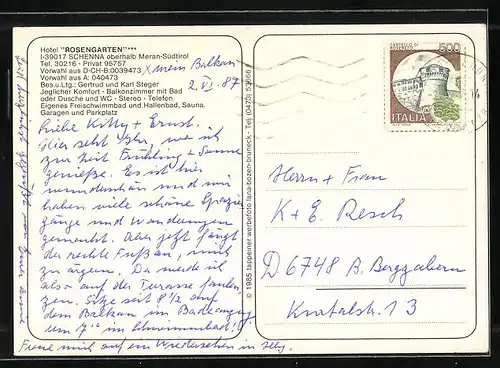 Hotel "ROSENGARTEN"***
I-39017 SCHENNA oberhalb Meran-Südtirol
Tel. 30216 - Privat 95757
Vorwahl aus D-CH-B:0039473 x mein Balkon
Vorwahl aus A: 040473
2. VI. 87
Bes.u.Ltg.: Gertrud und Karl Steger
Jeglicher Komfort - Balkonzimmer mit Bad
oder Dusche und WC - Stereo - Telefon.
Eigenes Freischwimmbad und Hallenbad, Sauna.
Garagen und Parkplatz
Liebe Kitty + Ernst.
Hier seht Ihr, wo ich
zur Zeit Frühling + Sonne
genieße. Es ist hier
wunderschön und wir
haben viele schöne Spazier
gänge und Wanderungen
gemacht. Aber jetzt fängt
der rechte Fuß an, mich
zu ärgern. Da werde ich
also auf der Terasse faulen
zen. Sitze seit 8½ auf
dem Balkon im Badeanzug
um 7 im Schwimmbad!
Freue mich auf ein Wiedersehen in
© 1985 tappeiner werbefoto lana-bozen-bruneck · Tel. (0473)
CASTELLO DI
500
ITALIA
Herrn + Frau
K + E. Resch
D 6748 A. Bergzabern
Kurtalstr 13